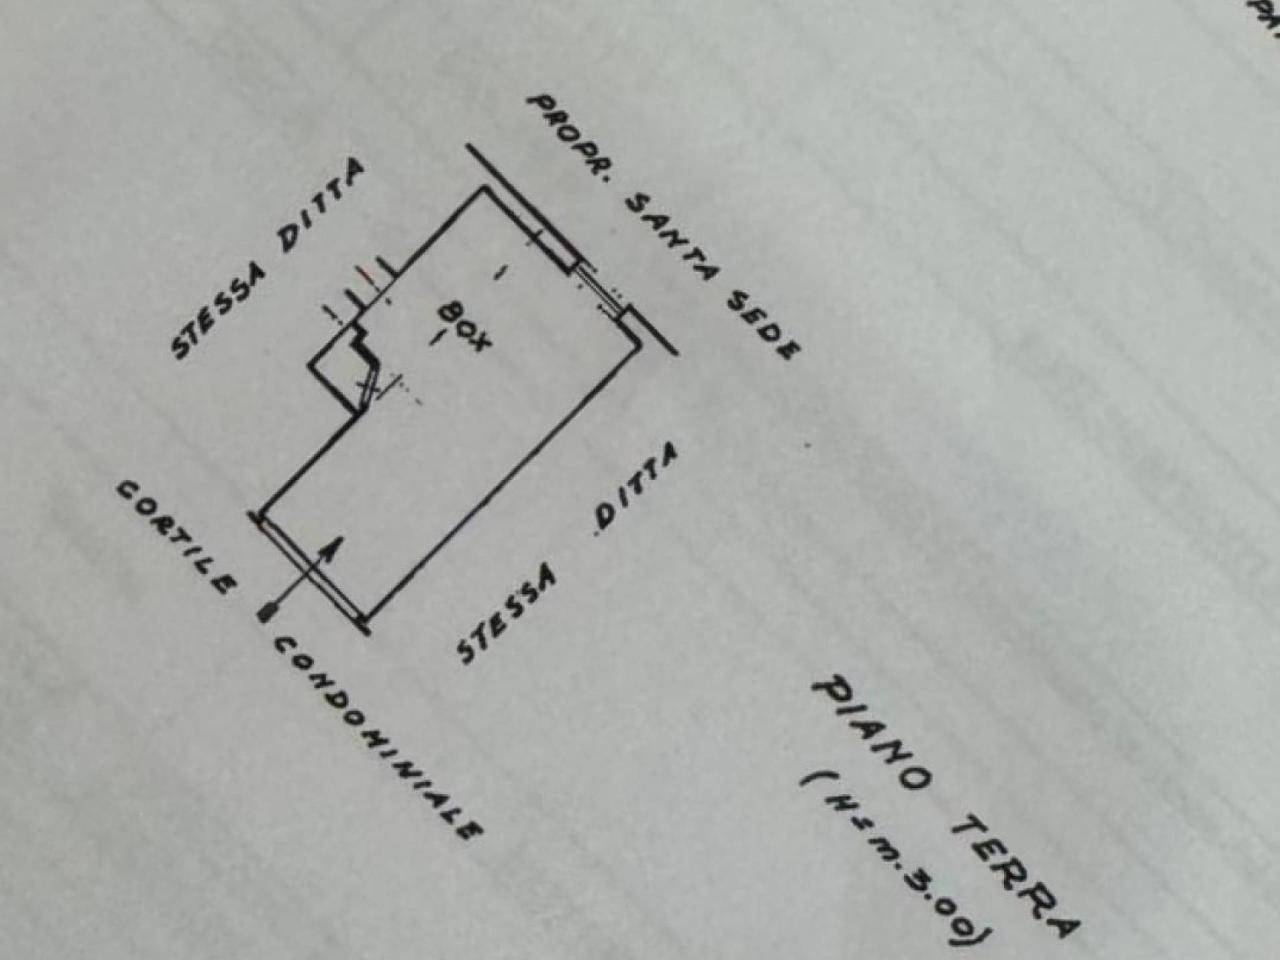 PROPR. SANTA SEDE
STESSA DITTA
BOX
STESSA DITTA
CORTILE CONDOMINIALE
PIANO TERRA
(H=m.3.00)